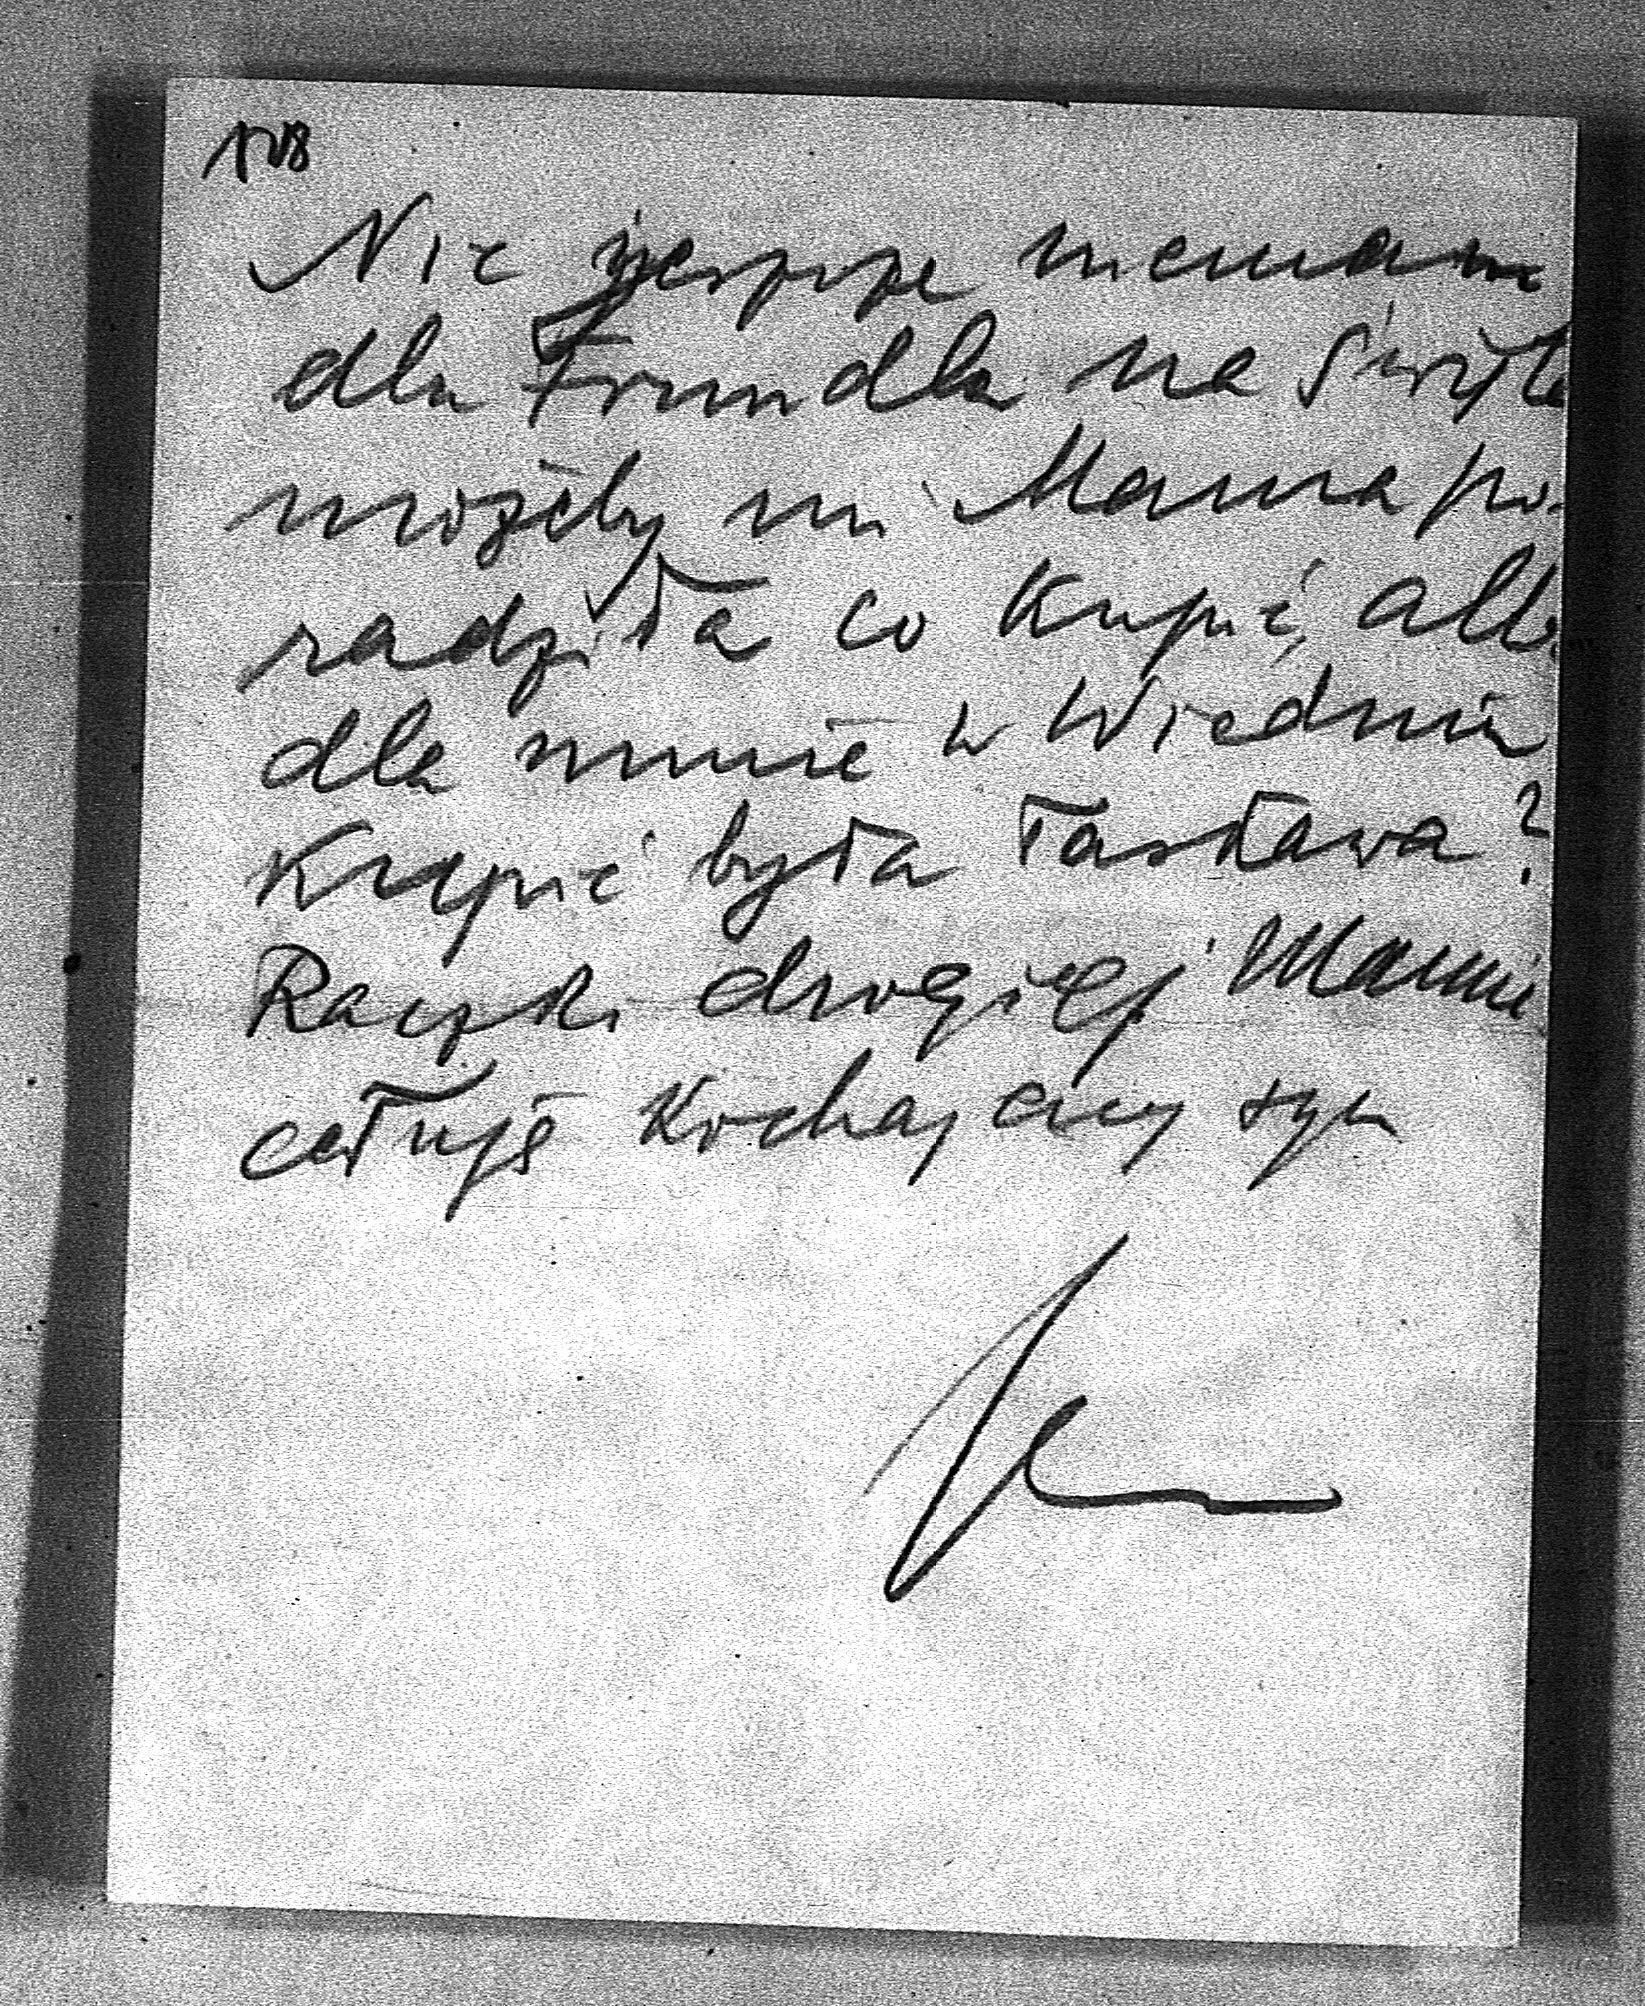 Nic jeszcze niemam
dla Frumdla na Święta
możeby mi Mama po-
radziła co kupić, albo
dla mnie w Wiedniu
kupić była łaskawa?
Rączki drogiej Mamie
całuję kochający syn